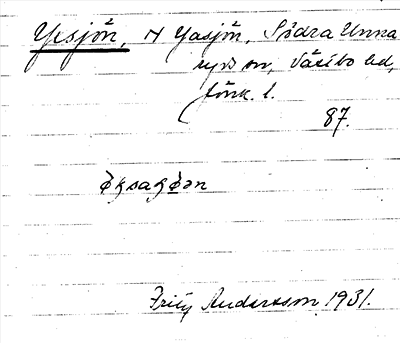 Yxsjön, N Yasjön, Södra Unna
ryds sn, Västbo hd,
Jönk. l.
87.
Fritz Andersson 1931.